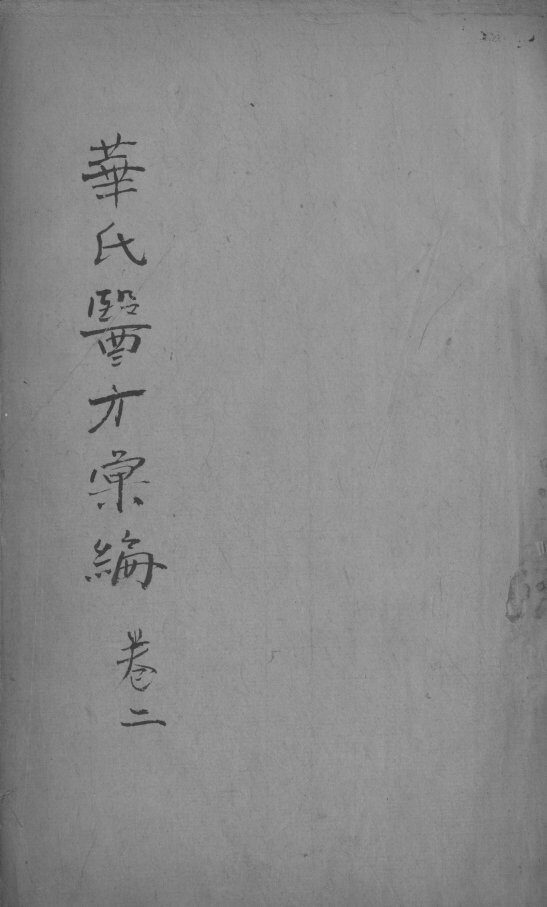 華氏醫方彙編 卷二